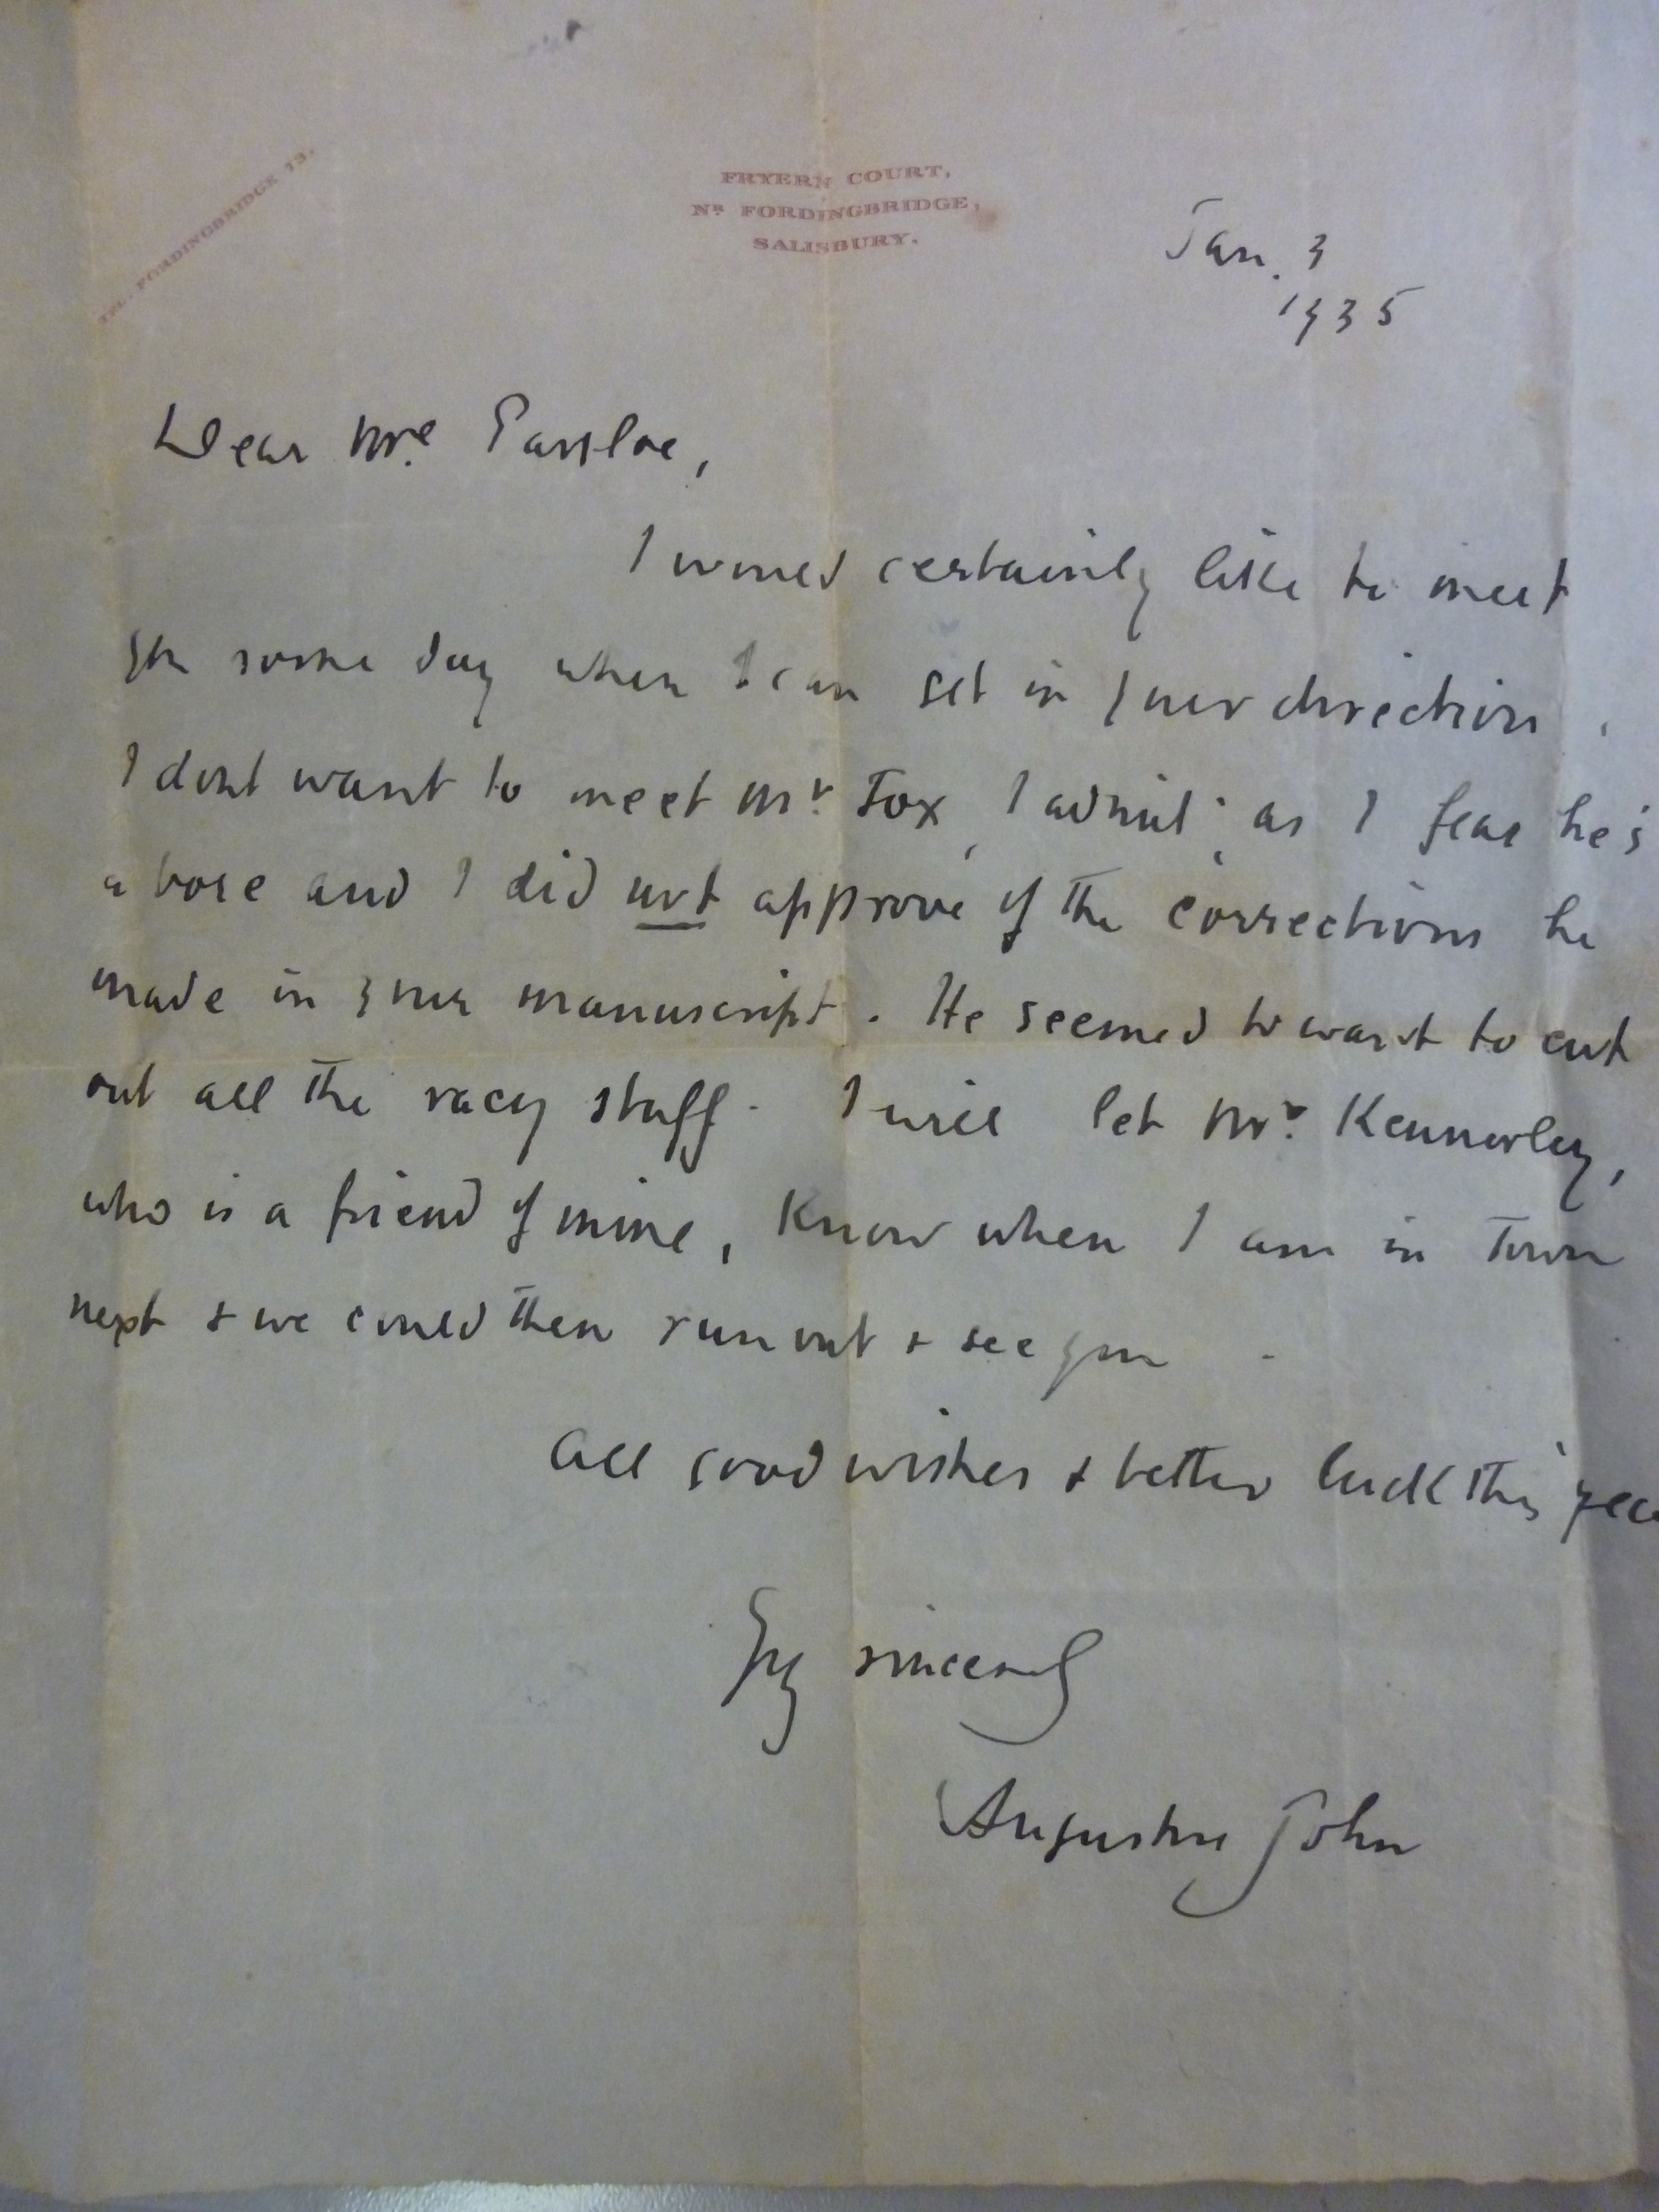 TEL. FORDINGBRIDGE 13.
FRYERN COURT,
NR FORDINGBRIDGE,
SALISBURY.
Jan. 3
1935
Dear Mrs. Parsloe,
I would certainly like to meet
you some day when I can get in your direction.
I dont want to meet Mr. Fox, I admit, as I fear he's
a bore and I did not approve of the corrections he
made in your manuscript. He seemed to want to cut
out all the racy stuff. I will let Mr. Kennerley,
who is a friend of mine, know when I am in Town
next & we could then run out & see you.
All good wishes & better luck this yea
Yrs sincerely
Augustus John